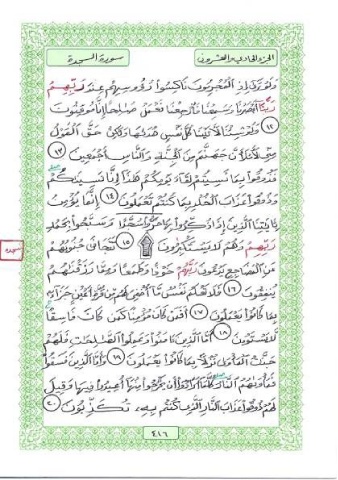 الجزء الحادي والعشرون
سورة السجدة
وَلَوْ تَرَىٰ إِذِ الْمُجْرِمُونَ نَاكِسُوا رُءُوسِهِمْ عِندَ رَبِّهِمْ
رَبَّنَا أَبْصَرْنَا وَسَمِعْنَا فَارْجِعْنَا نَعْمَلْ صَالِحًا إِنَّا مُوقِنُونَ
١٢ وَلَوْ شِئْنَا لَءَاتَيْنَا كُلَّ نَفْسٍ هُدَىٰهَا وَلَٰكِنْ حَقَّ الْقَوْلُ
مِنِّي لَأَمْلَأَنَّ جَهَنَّمَ مِنَ الْجِنَّةِ وَالنَّاسِ أَجْمَعِينَ ١٣
فَذُوقُوا بِمَا نَسِيتُمْ لِقَاءَ يَوْمِكُمْ هَٰذَا إِنَّا نَسِينَٰكُمْ
وَذُوقُوا عَذَابَ الْخُلْدِ بِمَا كُنتُمْ تَعْمَلُونَ ١٤ إِنَّمَا يُؤْمِنُ
بِـَٔايَٰتِنَا الَّذِينَ إِذَا ذُكِّرُوا بِهَا خَرُّوا سُجَّدًا وَسَبَّحُوا بِحَمْدِ
رَبِّهِمْ وَهُمْ لَا يَسْتَكْبِرُونَ ١٥ تَتَجَافَىٰ جُنُوبُهُمْ
سجده
عَنِ الْمَضَاجِعِ يَدْعُونَ رَبَّهُمْ خَوْفًا وَطَمَعًا وَمِمَّا رَزَقْنَٰهُمْ
يُنفِقُونَ ١٦ فَلَا تَعْلَمُ نَفْسٌ مَّا أُخْفِيَ لَهُم مِّن قُرَّةِ أَعْيُنٍ جَزَاءً
بِمَا كَانُوا يَعْمَلُونَ ١٧ أَفَمَن كَانَ مُؤْمِنًا كَمَن كَانَ فَاسِقًا
لَّا يَسْتَوُونَ ١٨ أَمَّا الَّذِينَ ءَامَنُوا وَعَمِلُوا الصَّٰلِحَٰتِ فَلَهُمْ
جَنَّٰتُ الْمَأْوَىٰ نُزُلًا بِمَا كَانُوا يَعْمَلُونَ ١٩ وَأَمَّا الَّذِينَ فَسَقُوا
فَمَأْوَىٰهُمُ النَّارُ كُلَّمَا أَرَادُوا أَن يَخْرُجُوا مِنْهَا أُعِيدُوا فِيهَا وَقِيلَ
لَهُمْ ذُوقُوا عَذَابَ النَّارِ الَّذِي كُنتُم بِهِ تُكَذِّبُونَ ٢٠
٤١٦